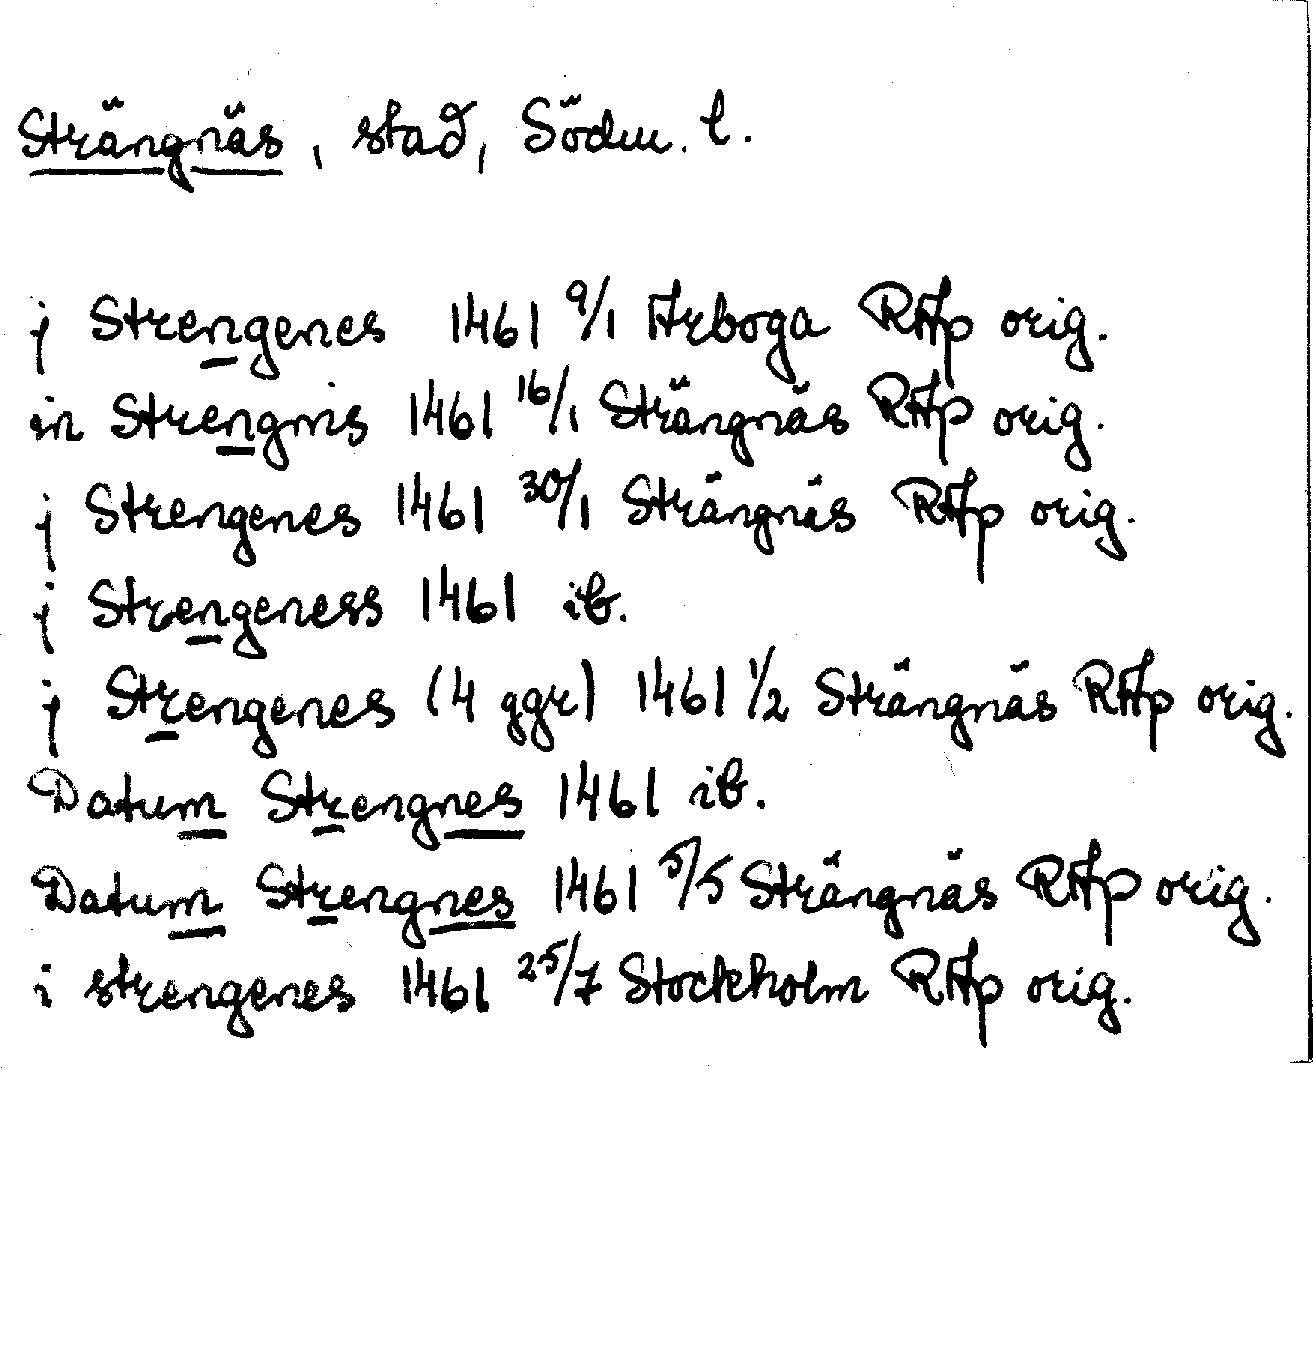 Strängnäs, stad, Södm. l.
j Strengenes 1461 9/1 Arboga RAp orig.
in Strengnis 1461 16/1 Strängnäs RAp orig.
j Strengenes 1461 30/1 Strängnäs RAp orig.
j Strengeness 1461 ib.
j Strengenes (4 ggr) 1461 1/2 Strängnäs RAp orig.
Datum Strengnes 1461 ib.
Datum Strengnes 1461 5/5 Strängnäs RAp orig.
i strengenes 1461 25/7 Stockholm RAp orig.